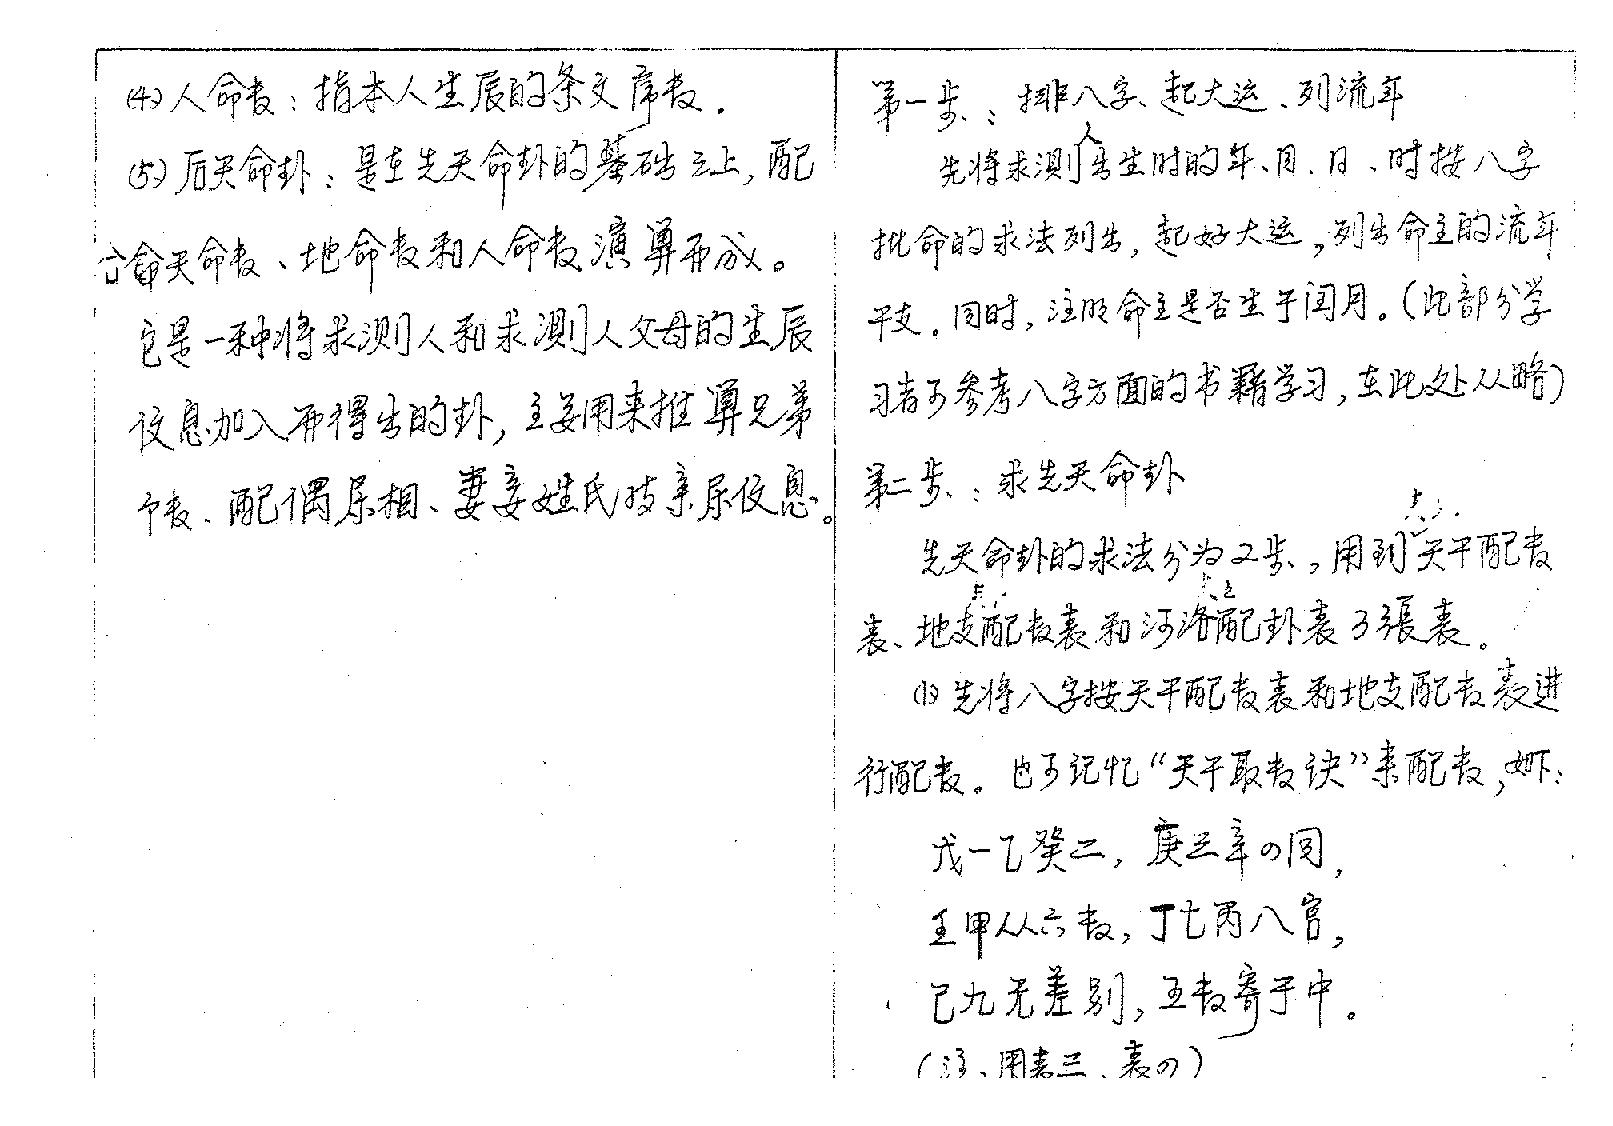 (4)人命数：指本人生辰的条文序数.
(5)后天命卦：是在先天命卦的基础之上,配
合命天命数、地命数和人命数演算而成。
它是一种将求测人和求测人父母的生辰
信息加入而得出的卦,主要用来推算兄弟
个数、配偶属相、妻妾姓氏对亲属信息。
第一步：排八字、起大运、列流年
先将求测人出生时的年、月、日、时按八字
批命的求法列出,起好大运,列出命主的流年
干支。同时,注明命主是否生于闰月。(此部分学
习者可参考八字方面的书籍学习,在此处从略)
第二步：求先天命卦
先天命卦的求法分为2步,用到天干配数
表、地支配数表和河洛配卦表3張表。
(1)先将八字按天干配数表和地支配数表进
行配数。也可记忆“天干取数诀”来配数,如下：
戊一乙癸二,庚三辛の同,
壬甲从六数,丁七丙八宫,
己九无差别,五数寄于中。
(注、用表三、表の)